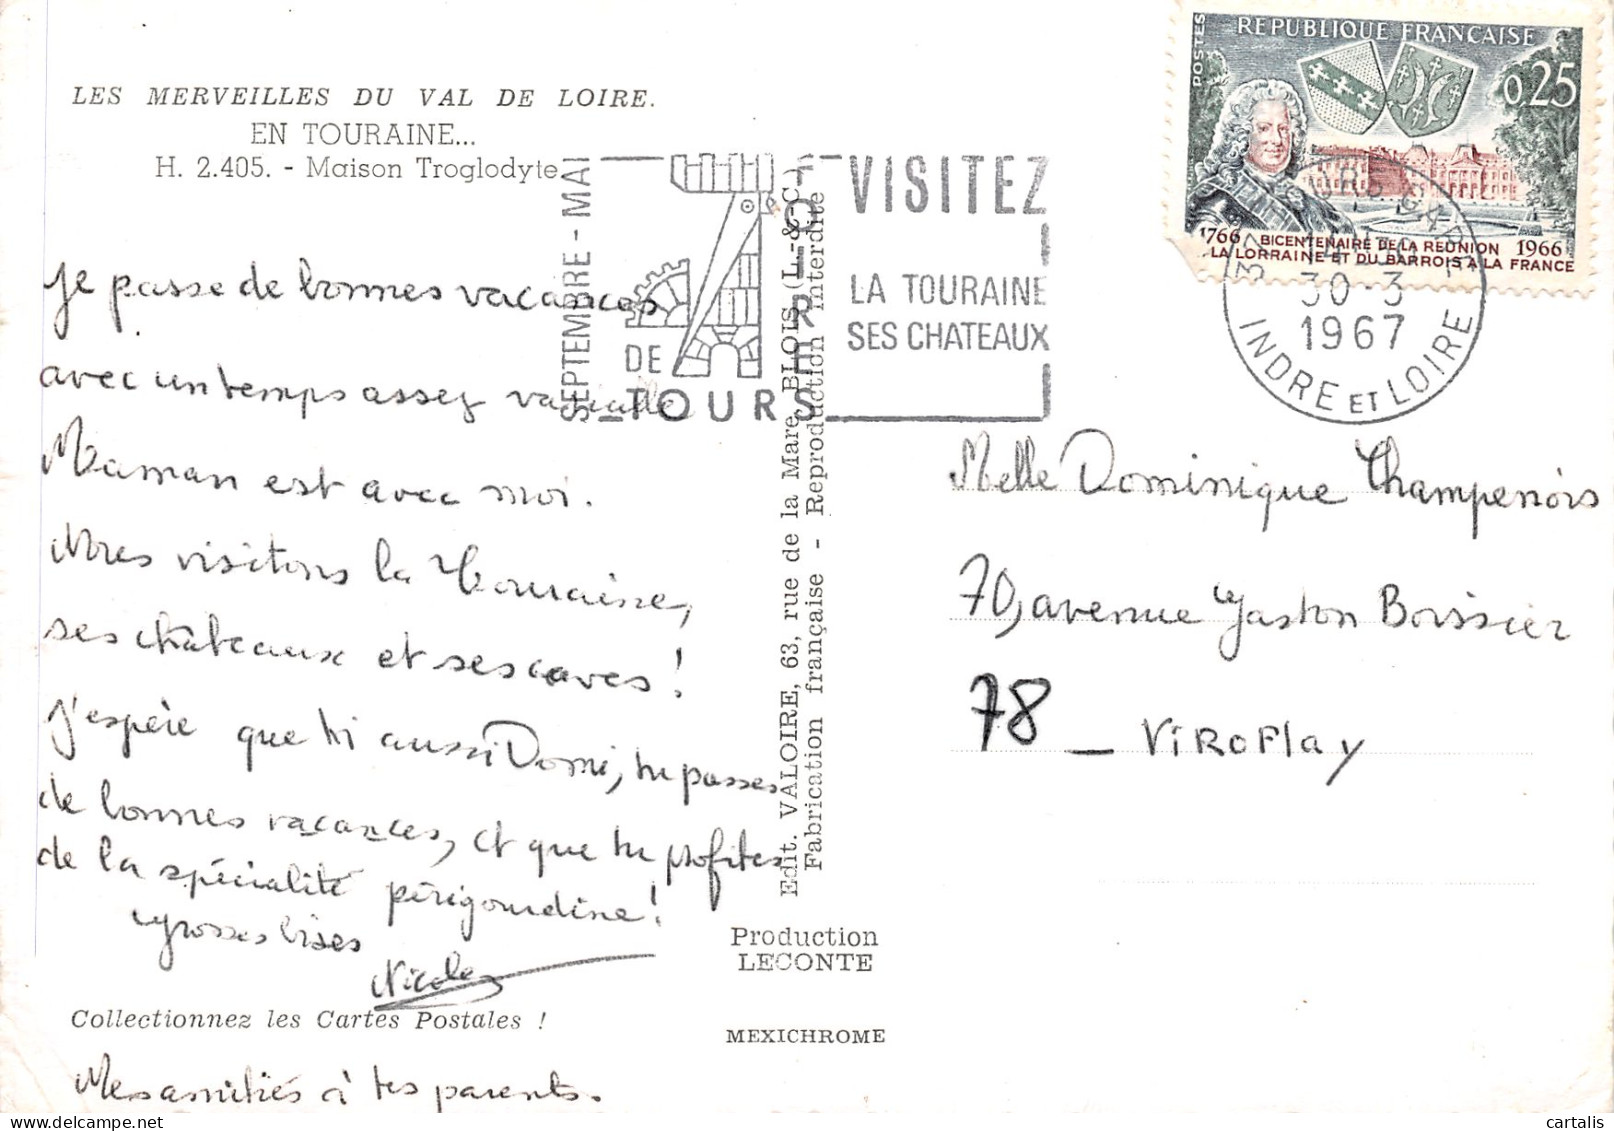 LES MERVEILLES DU VAL DE LOIRE.
EN TOURAINE...
H. 2.405. - Maison Troglodyte
Je passe de bonnes vacances
avec un temps assez variable
Maman est avec moi.
Nous visitons la Touraine,
ses châteaux et ses caves !
J'espère que tu aussi Domi, tu passes
de bonnes vacances, et que tu profites
de la spécialité périgourdine !
Grosses bises
Nicole
Collectionnez les Cartes Postales !
Mes amitiés à tes parents.
SEPTEMBRE - MAI
FLORALIES
DE
TOURS
VISITEZ
LA TOURAINE
SES CHATEAUX
Edit. VALOIRE, 63, rue de la Mare BLOIS (L.-&-C.)
Fabrication française - Reproduction interdite
Production
LECONTE
MEXICHROME
POSTES
REPUBLIQUE FRANÇAISE
0,25
1766 BICENTENAIRE DE LA REUNION 1966
LA LORRAINE ET DU BARROIS A LA FRANCE
TOURS GARE
30-3
1967
INDRE ET LOIRE
Melle Dominique Champenois
70, avenue Gaston Boissier
78 - Viroflay
cartalis